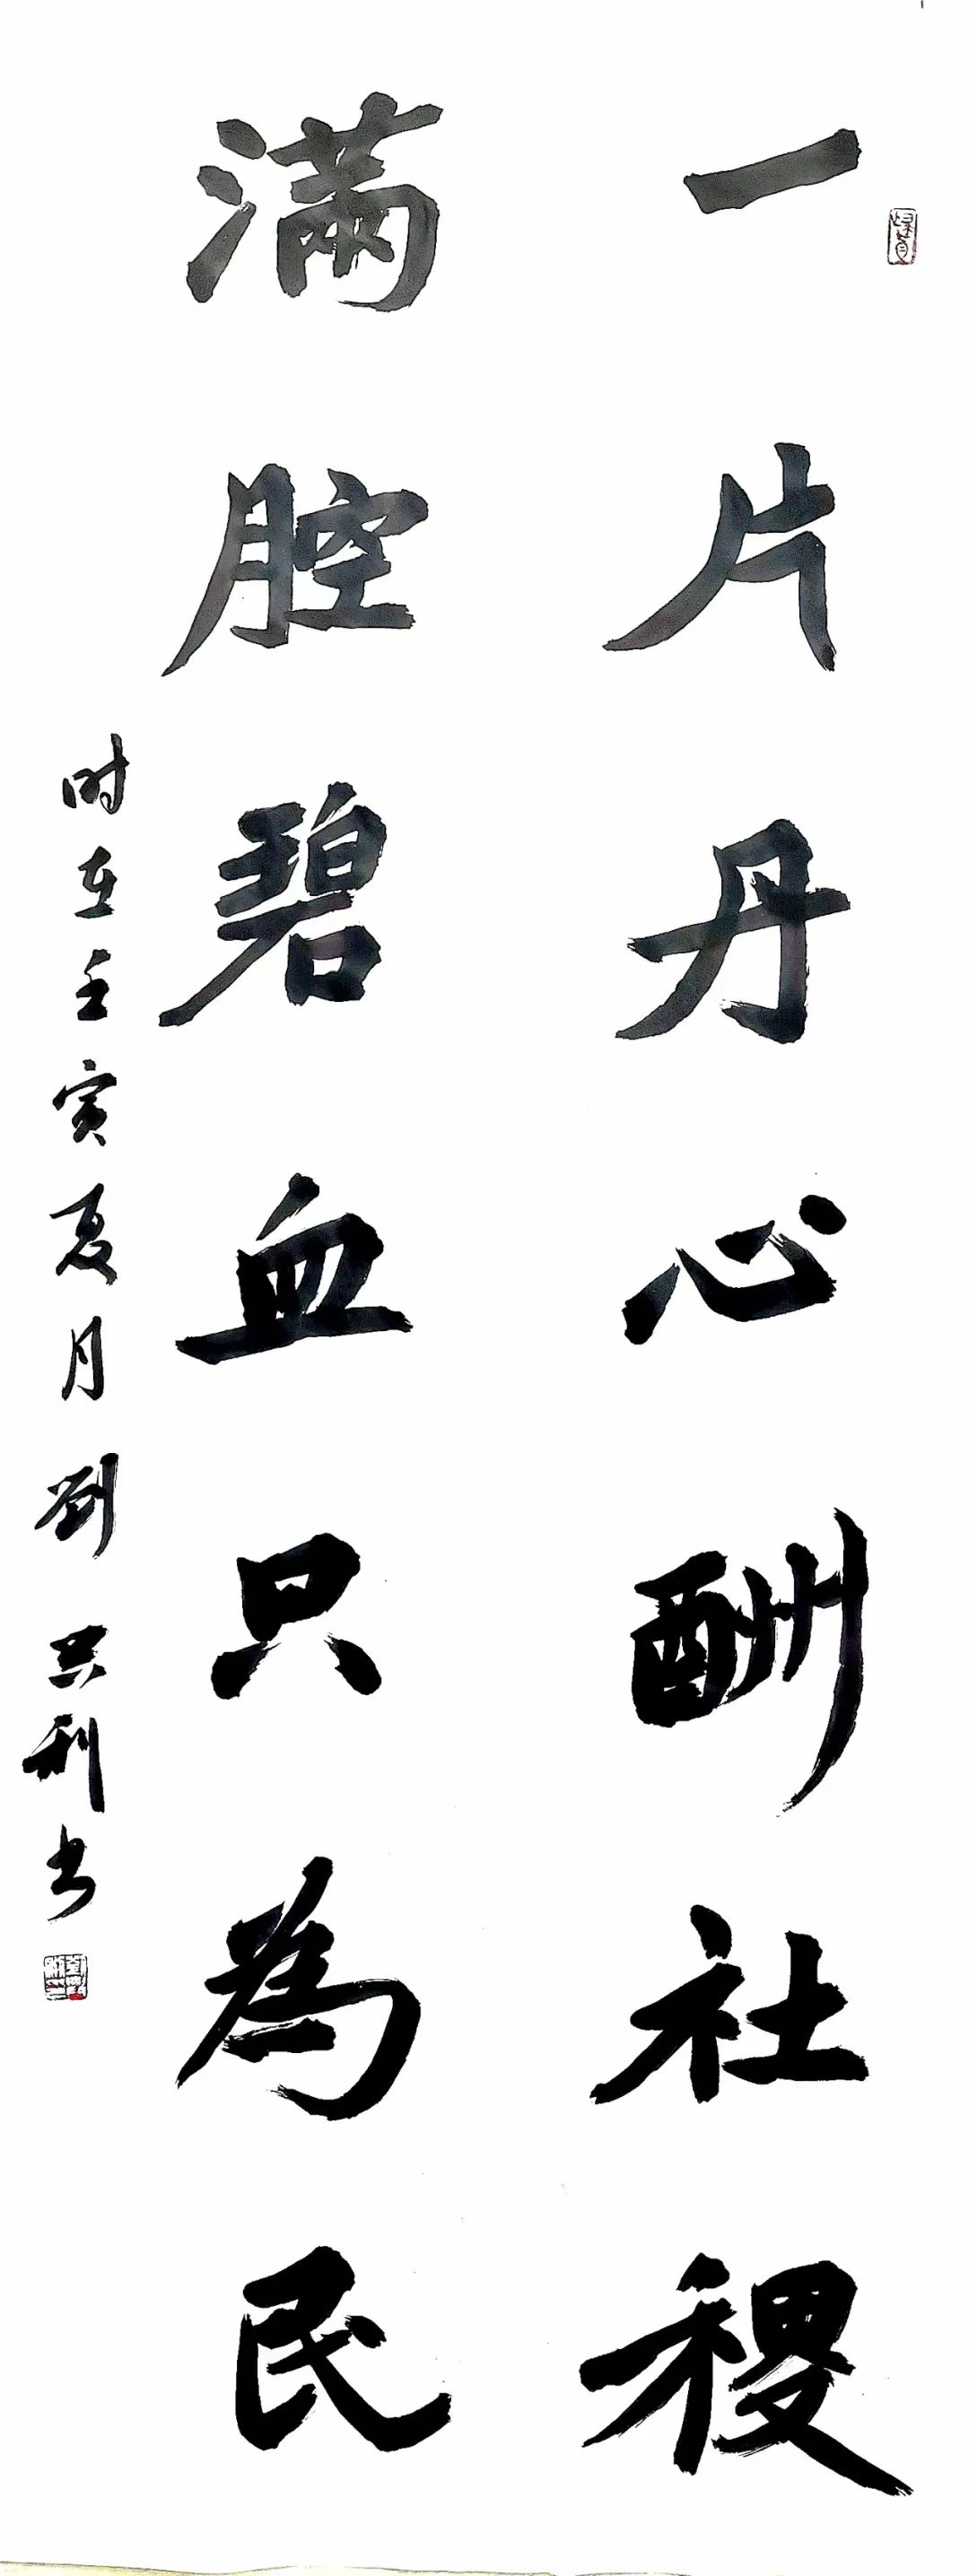 一片丹心酬社稷
满腔碧血只為民
时在壬寅夏月刘共利书